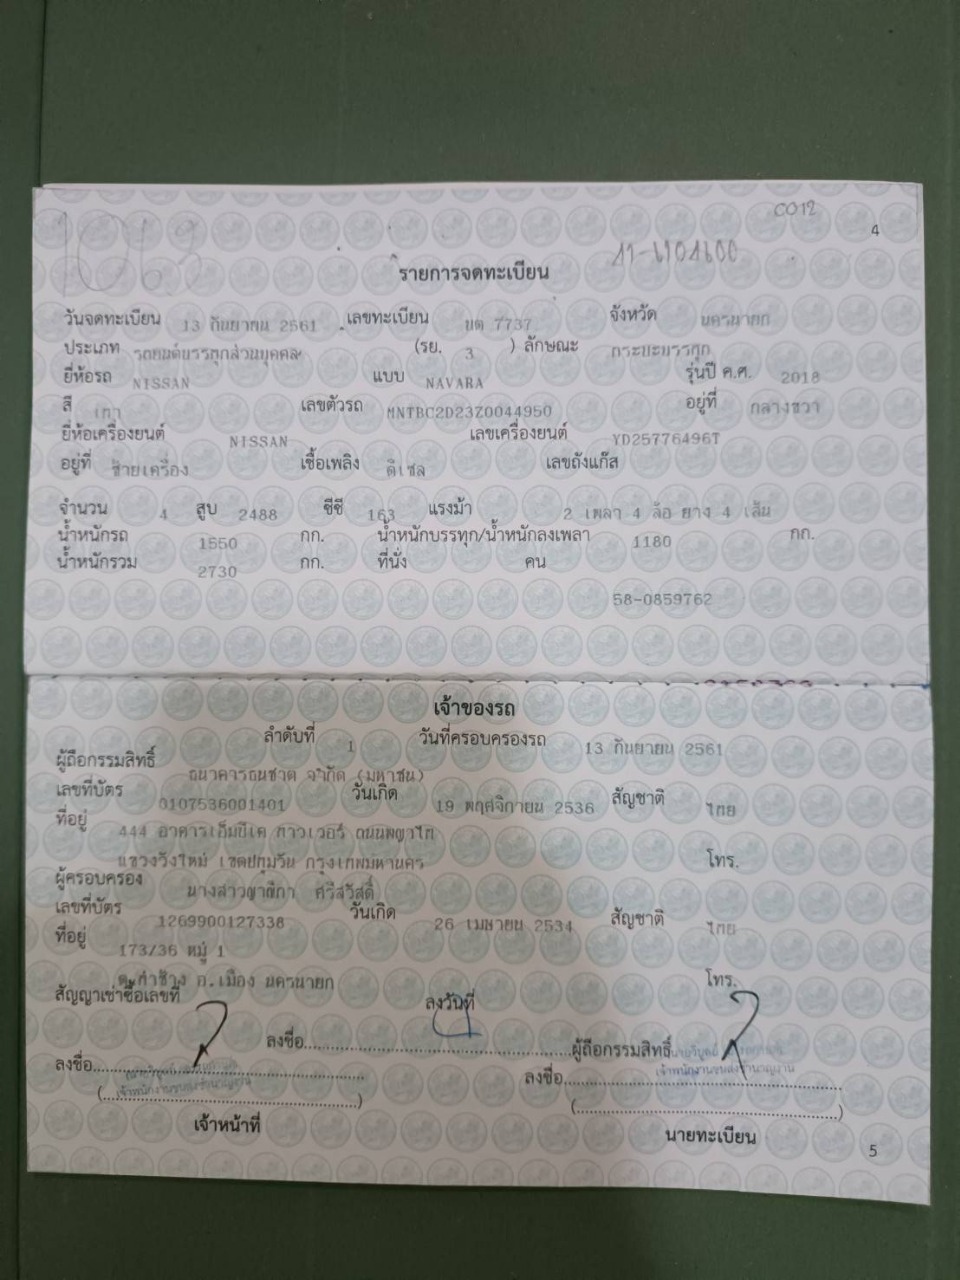 1063
CO12
4
11-6101600
รายการจดทะเบียน
วันจดทะเบียน 13 กันยายน 2561 เลขทะเบียน นต 7737 จังหวัด นครนายก
ประเภท รถยนต์บรรทุกส่วนบุคคล (รย. 3 ) ลักษณะ กระบะบรรทุก
ยี่ห้อรถ NISSAN แบบ NAVARA รุ่นปี ค.ศ. 2018
สี เทา เลขตัวรถ MNTBC2D23Z0044950 อยู่ที่ กลางขวา
ยี่ห้อเครื่องยนต์ NISSAN เลขเครื่องยนต์ YD25776496T
อยู่ที่ ซ้ายเครื่อง เชื้อเพลิง ดีเซล เลขถังแก๊ส
จำนวน 4 สูบ 2488 ซีซี 163 แรงม้า 2 เพลา 4 ล้อ ยาง 4 เส้น
น้ำหนักรถ 1550 กก. น้ำหนักบรรทุก/น้ำหนักลงเพลา 1180 กก.
น้ำหนักรวม 2730 กก. ที่นั่ง คน
58-0859762
เจ้าของรถ
ลำดับที่ 1 วันที่ครอบครองรถ 13 กันยายน 2561
ผู้ถือกรรมสิทธิ์ ธนาคารธนชาต จำกัด (มหาชน)
เลขที่บัตร 0107536001401 วันเกิด 19 พฤศจิกายน 2536 สัญชาติ ไทย
ที่อยู่ 444 อาคารเอ็มบีเค ทาวเวอร์ ถนนพญาไท
แขวงวังใหม่ เขตปทุมวัน กรุงเทพมหานคร โทร.
ผู้ครอบครอง นางสาวญาณิกา ศรีสวัสดิ์
เลขที่บัตร 1269900127338 วันเกิด 26 เมษายน 2534 สัญชาติ ไทย
ที่อยู่ 173/36 หมู่ 1
ต.ท่าช้าง อ.เมือง นครนายก โทร.
สัญญาเช่าซื้อเลขที่ ลงวันที่
ลงชื่อ ผู้ถือกรรมสิทธิ์
ลงชื่อ ลงชื่อ
เจ้าพนักงานขนส่งชำนาญงาน เจ้าพนักงานขนส่งชำนาญงาน
เจ้าหน้าที่ นายทะเบียน
5